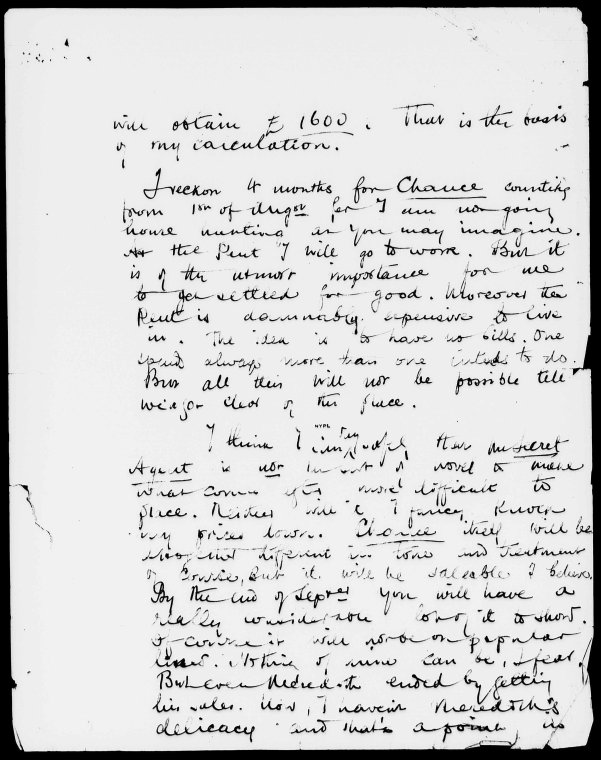 will obtain £ 1600. That is the basis
of my calculation.
I reckon 4 months for Chance counting
from 1st of Augst for I am not going
house hunting as you may imagine.
At the Pent I will go to work. But it
is of the utmost importance for me
to get settled for good. Moreover the
Pent is damnably expensive to live
in. The idea is to have no bills. One
spends always more than one intends to do.
But all this will not be possible till
we get clear of this place.
NYPL
I think I may say safely that the Secret
Agent is not the sort of novel to make
what comes after more difficult to
place. Neither will it I fancy knock
my prices down. Chance itself will be
altogether different in tone and treatment
of course, but it will be saleable I believe.
By the end of Septer you will have a
really considerable lot of it to show.
Of course it will not be on popular
lines. Nothing of mine can be, I fear.
But even Meredith ended by getting
his sales. Now, I haven't Meredith's
delicacy and that's a point in